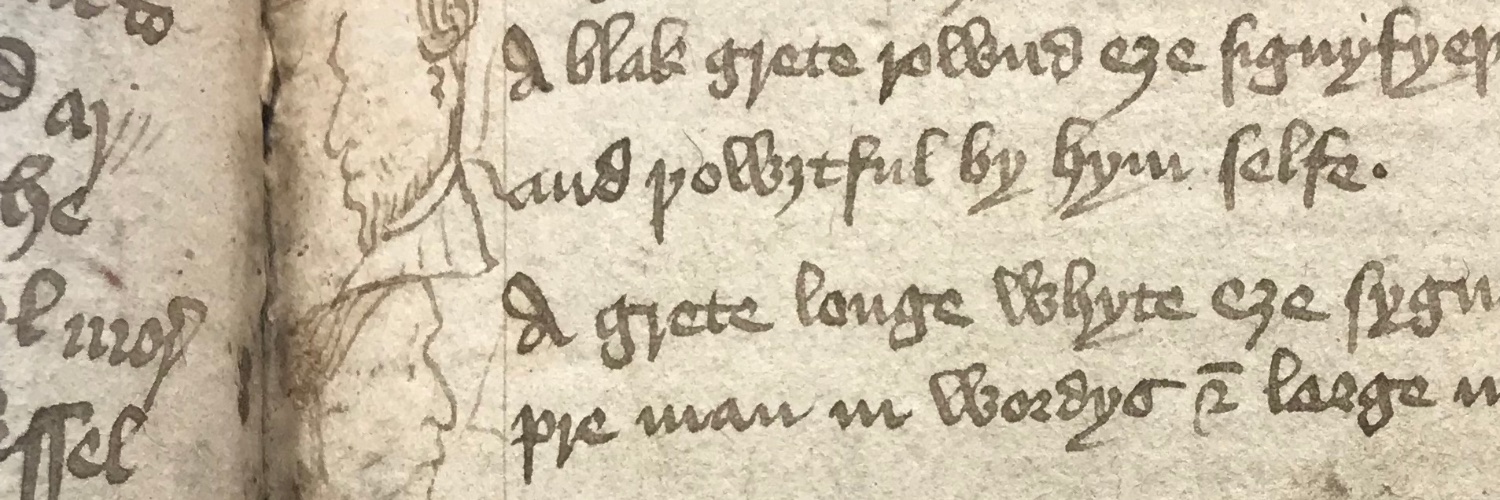 ay
he
ssel
A blak grete rownd eȝe signyfyeþ
and powȝtful by hym selfe.
A grete longe whyte eȝe sygn
pre man in wordys & large